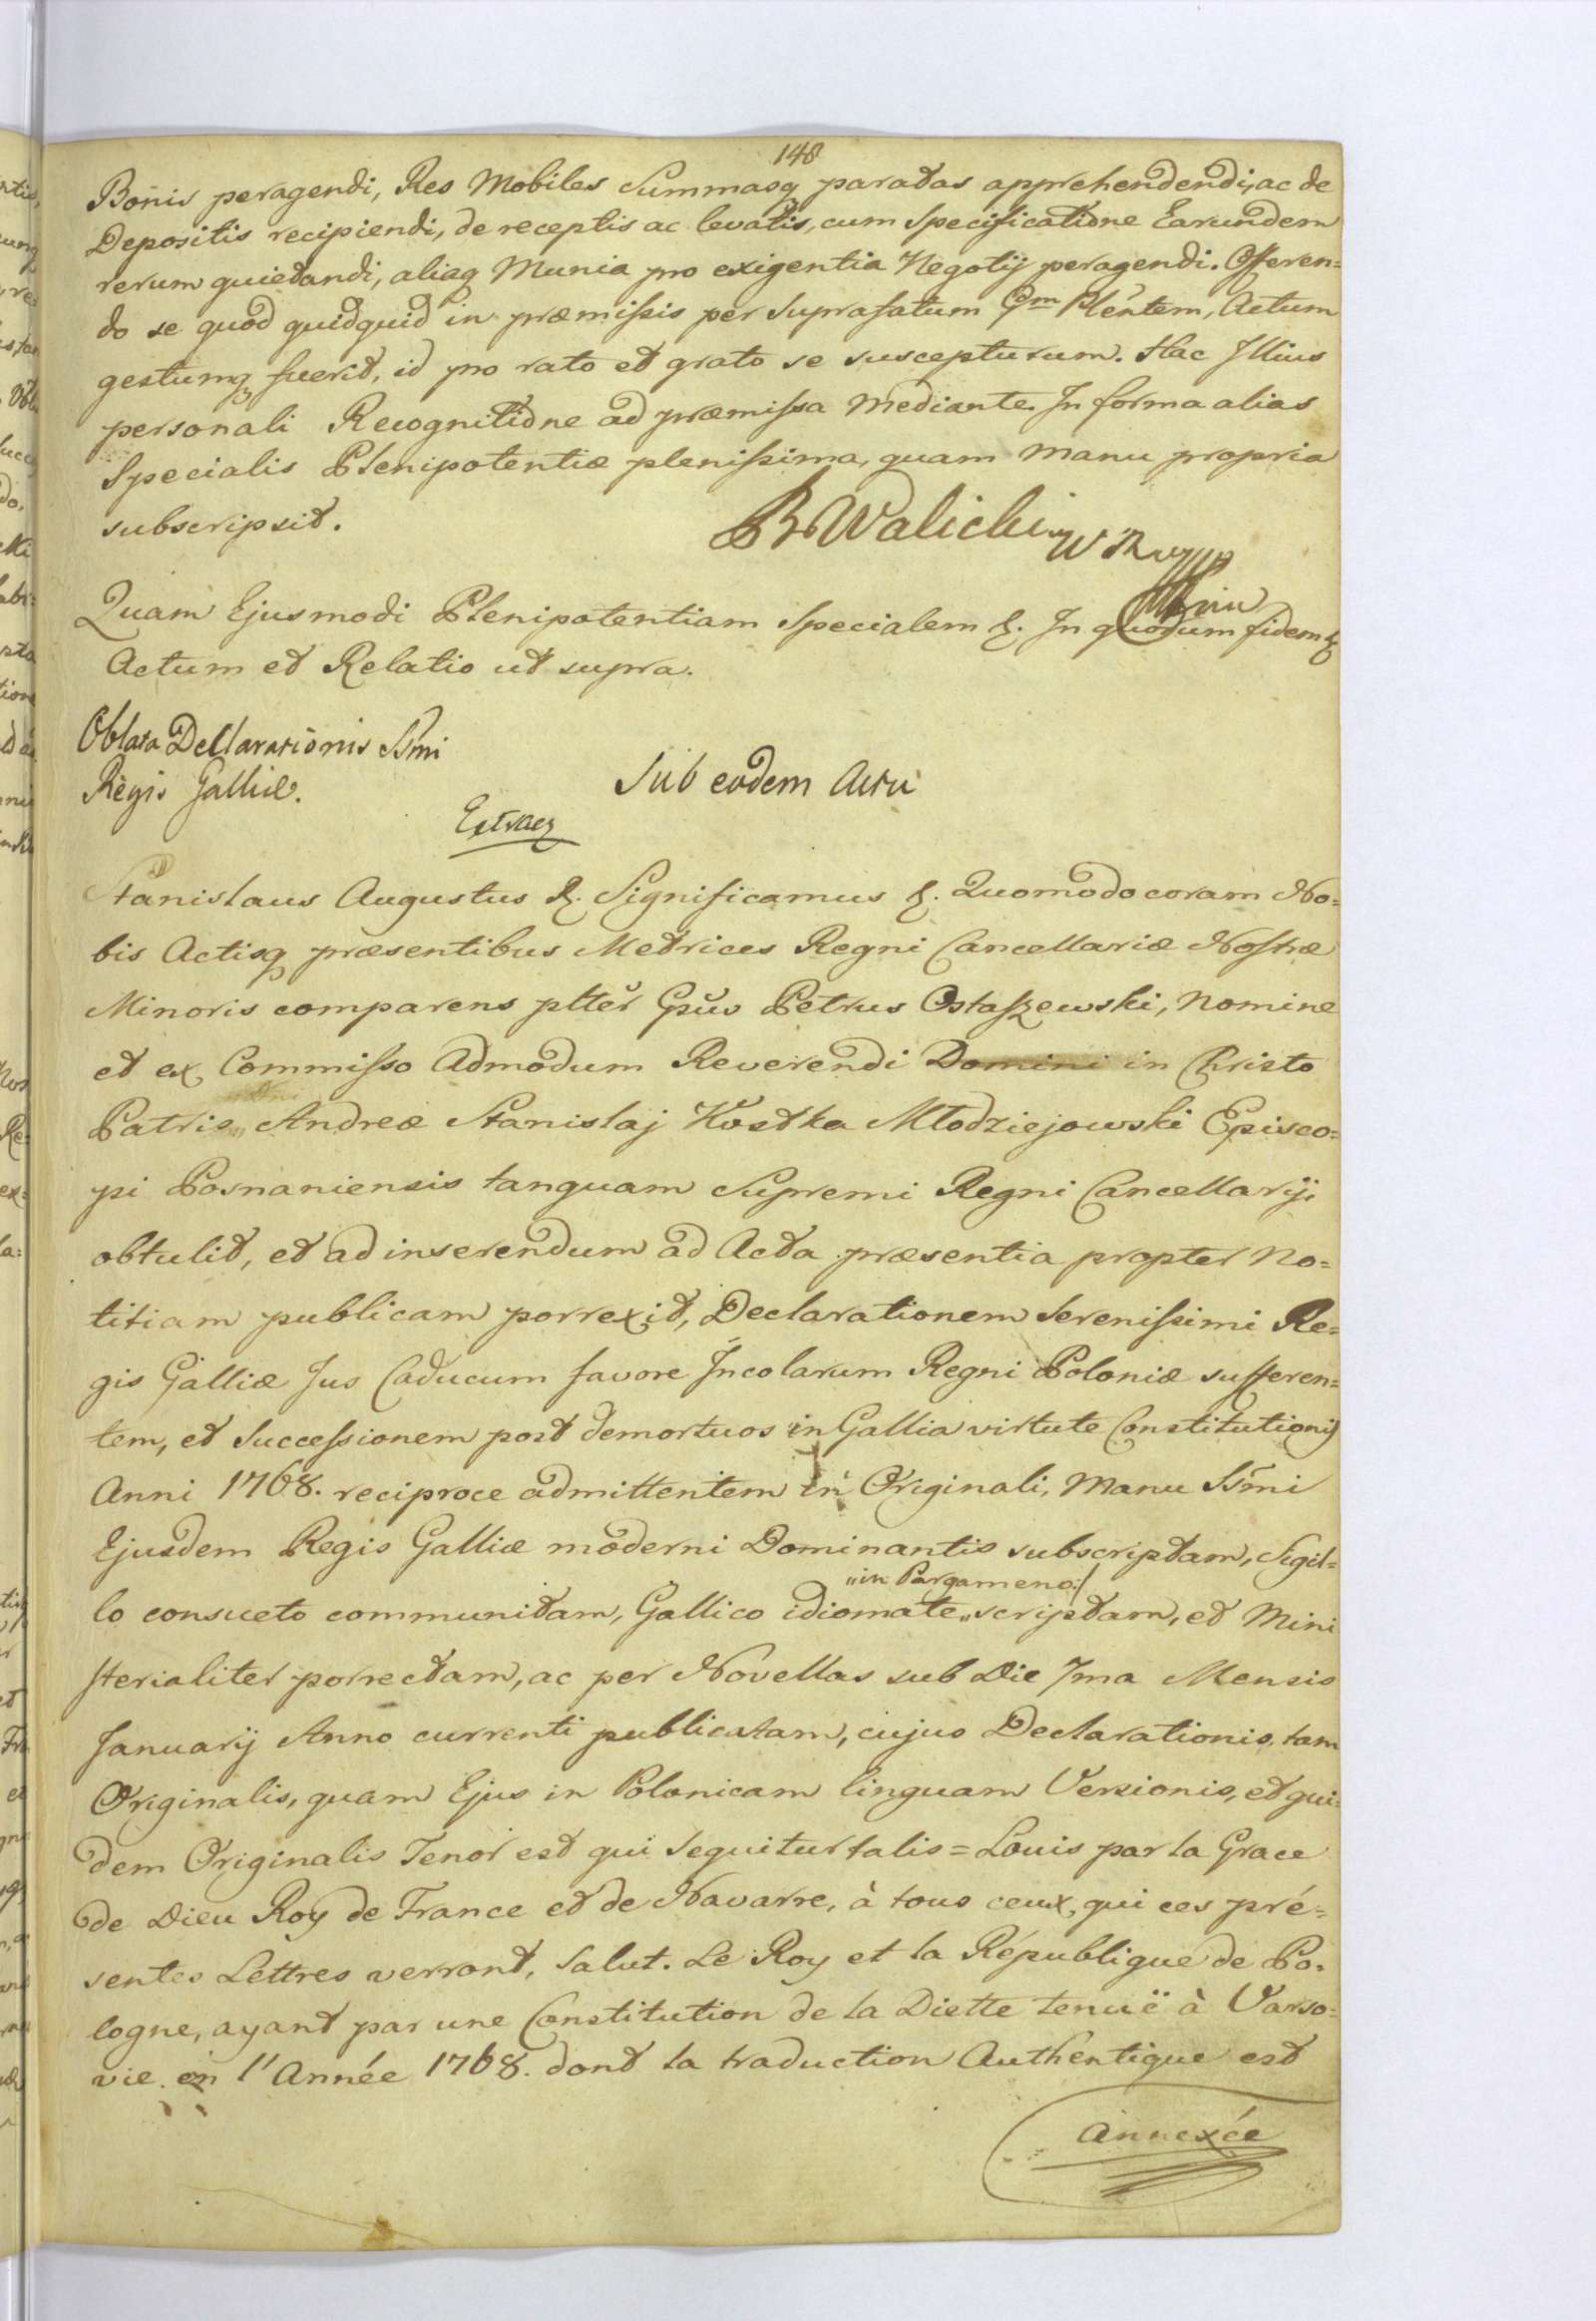 148
Bonis peragendi, Res Mobiles Summasq paratas apprehendendi, ac de
Depositis recipiendi, de receptis ac levatis, cum Specificatione Earundem
rerum quietandi, aliaq Munia pro exigentia Negotij peragendi. Offeren=
do se quod quidquid in præmissis per Suprafatum Gm Plentem, Actum
gestumq fuerit, id pro rato et grato se suscepturum. Hac Illius
personali Recognitione ad præmissa Mediante. In forma alias
Specialis Plenipotentiæ plenissima, quam Manu propria
subscripsit.
B Walicki W R
Quam Ejusmodi Plenipotentiam Specialem &. In quorum fidem &
Actum et Relatio ut supra.
Oblata Declarationis Ssmi
Regis Galliæ.
Sub eodem Actu
Stanislaus Augustus &. Significamus &. Quomodo coram No=
bis Actisq præsentibus Metrices Regni Cancellariæ Nostræ
Minoris comparens plter Gsus Petrus Ostaszewski, Nomine
et ex Commisso Admodum Reverendi Domini in Christo
Patris Andreæ Stanislaj Kostka Młodziejowski Episco=
pi Posnaniensis tanquam Supremi Regni Cancellarij,
obtulit, et ad inserendum ad Acta præsentia propter No=
titiam publicam porrexit, Declarationem Serenissimi Re=
gis Galliæ Jus Caducum favore Incolarum Regni Poloniæ sufferen=
tem, et Successionem post demortuos in Gallia virtute Constitutionis
Anni 1768. reciproce admittentem in Originali, Manu Ssmi
Ejusdem Regis Galliæ moderni Dominantis subscriptam, Sigil=
„in Pargameno:/
lo consueto communitam, Gallico idiomate„ scriptam, et Mini
sterialiter porrectam, ac per Novellas sub Die 7ma Mensis
Januarij Anno currenti publicatam, cujus Declarationis, tam
Originalis, quam Ejus in Polonicam linguam Versionis, et qui=
dem Originalis Tenor est qui sequitur talis = Louis par la Grace
de Dieu Roy de France et de Navarre, à tous ceux, qui ces pré=
sentes Lettres verront, Salut. Le Roy et la République de Po=
logne, ayant par une Constitution de la Diette tenuë à Varso=
vie en l'Année 1768. dont la traduction Authentique est
annexée